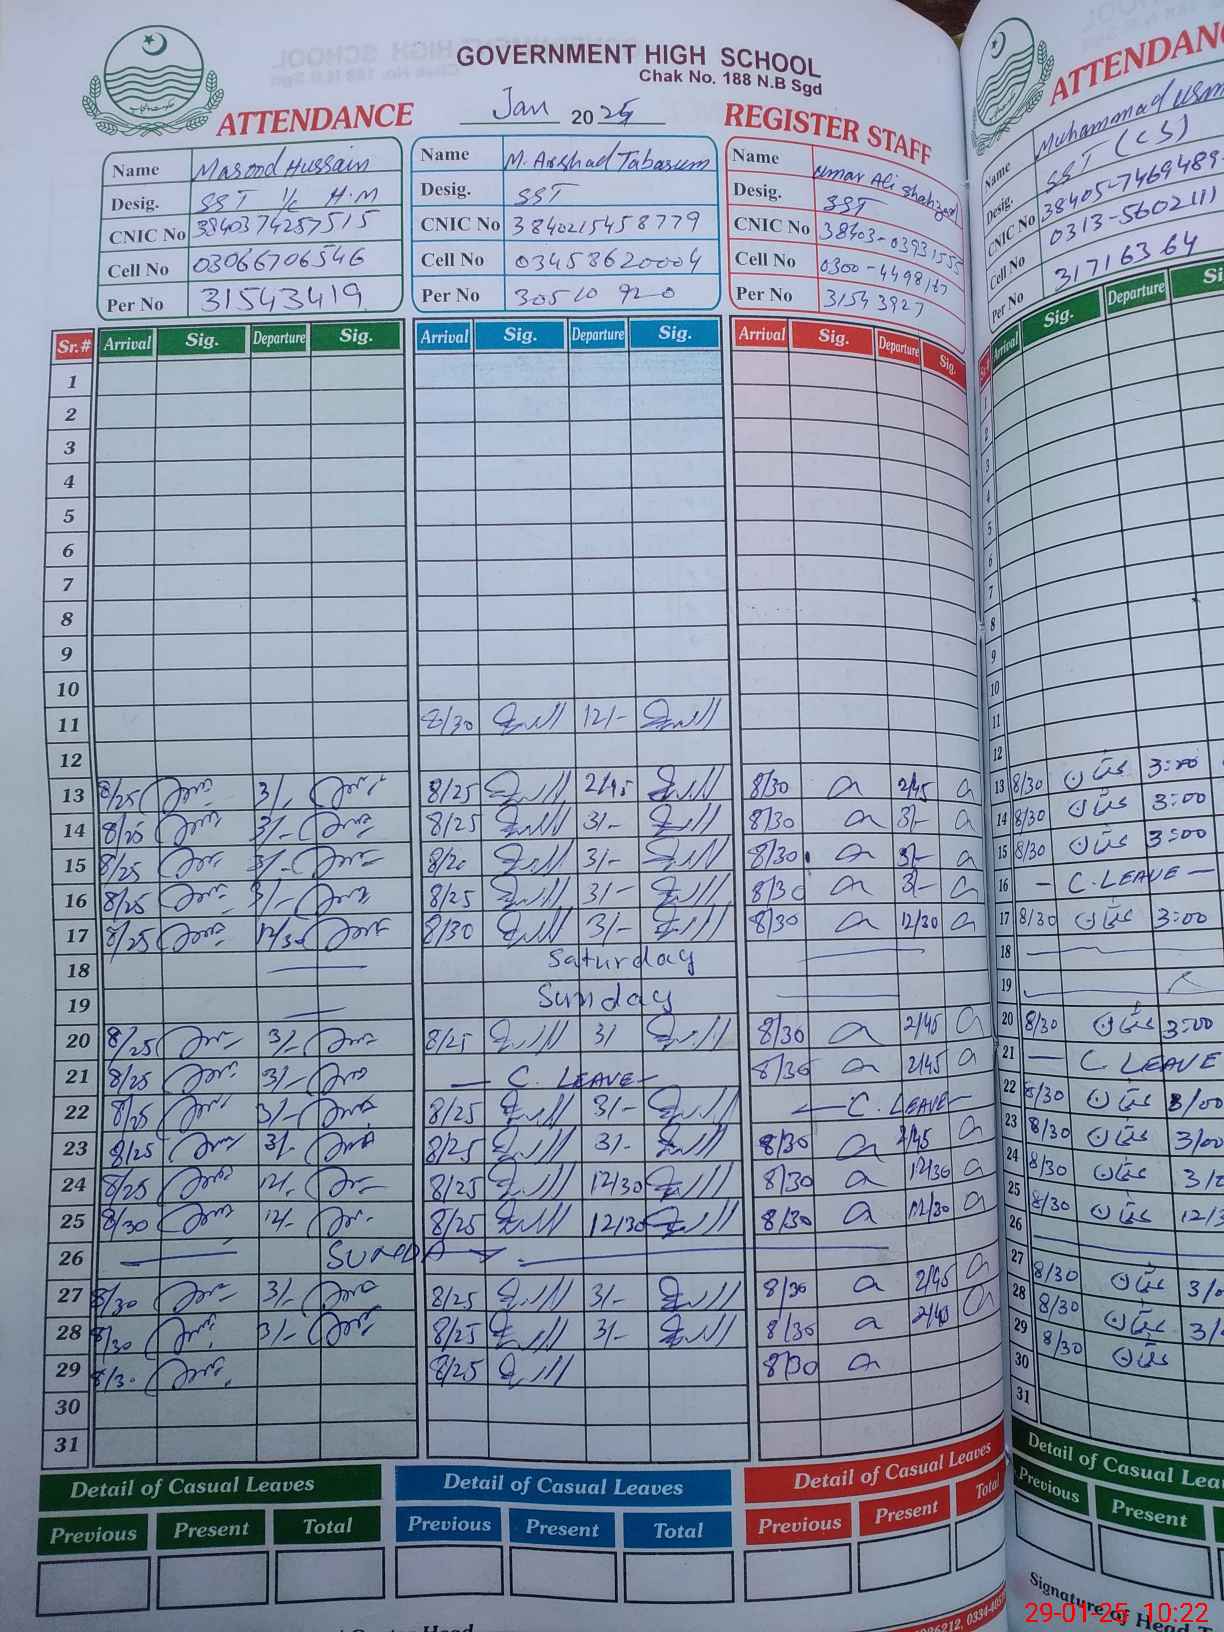 GOVERNMENT HIGH SCHOOL
Chak No. 188 N.B Sgd
ATTENDANCE Jan 2025 REGISTER STAFF
Name Masood Hussain
Desig. SST I/c H.M
CNIC No 3840374257515
Cell No 03066706546
Per No 31543419
Name M. Arshad Tabasum
Desig. SST
CNIC No 3840215458779
Cell No 03458620004
Per No 30510920
Name Umar Ali Shahzad
Desig. SST
CNIC No 38403-03931555
Cell No 0300-4498167
Per No 31543927
ATTENDAN
Name Muhammad Usm
Desig. SST (CS)
CNIC No 38405-7469489-
Cell No 0313-5602111
Per No 31716364
Sr.# Arrival Sig. Departure Sig. Arrival Sig. Departure Sig. Arrival Sig. Departure Sig. Arrival Sig. Departure Si
1 1
2 2
3 3
4 4
5 5
6 6
7 7
8 8
9 9
10 10
11 8/30 12/- 11
12 12
13 8/25 3/- 8/25 2/45 8/30 2/45 13 8/30 عثمان 3:00
14 8/25 3/- 8/25 3/- 8/30 3/- 14 8/30 عثمان 3:00
15 8/25 3/- 8/20 3/- 8/30 3/- 15 8/30 عثمان 3:00
16 8/25 3/- 8/25 3/- 8/30 3/- 16 — C. LEAVE —
17 8/25 12/30 8/30 3/- 8/30 12/30 17 8/30 عثمان 3:00
18 Saturday 18
19 Sunday 19
20 8/25 3/- 8/25 3/ 8/30 2/45 20 8/30 عثمان 3:00
21 8/25 3/- — C. LEAVE — 8/30 2/45 21 — C. LEAVE
22 8/25 3/- 8/25 3/- — C. LEAVE — 22 8/30 عثمان 3/00
23 8/25 3/- 8/25 3/- 8/30 2/45 23 8/30 عثمان 3/00
24 8/25 12/- 8/25 12/30 8/30 12/30 24 8/30 عثمان
25 8/30 12/- 8/25 12/30 8/30 12/30 25 8/30 عثمان 12/3
26 SUNDAY 26
27 8/30 3/- 8/25 3/- 8/30 2/45 27 8/30 عثمان
28 8/30 3/- 8/25 3/- 8/30 2/40 28 8/30 عثمان
29 8/3. 8/25 8/30 29 8/30 عثمان
30 30
31 31
Detail of Casual Leaves Detail of Casual Leaves Detail of Casual Leaves Detail of Casual Lea
Previous Present Total Previous Present Total Previous Present Total Previous Present
Signature of Head T
29-01-25 10:22